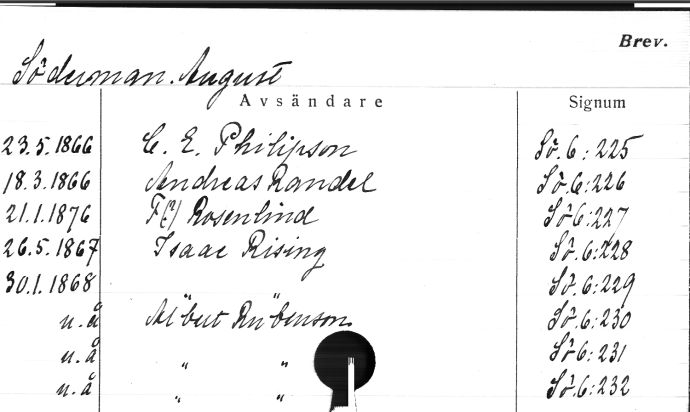 Brev.
Söderman. August
Avsändare Signum
23.5.1866 C. E. Philipson Sö.6:225
18.3.1866 Andreas Randel Sö.6:226
21.1.1876 F(?) Rosenlind Sö6:227
26.5.1867 Isaac Rising Sö.6:228
30.1.1868 " " Sö.6:229
u.å Albert Rubenson. Sö.6:230
u.å " " Sö6:231
u.å " " Sö.6:232